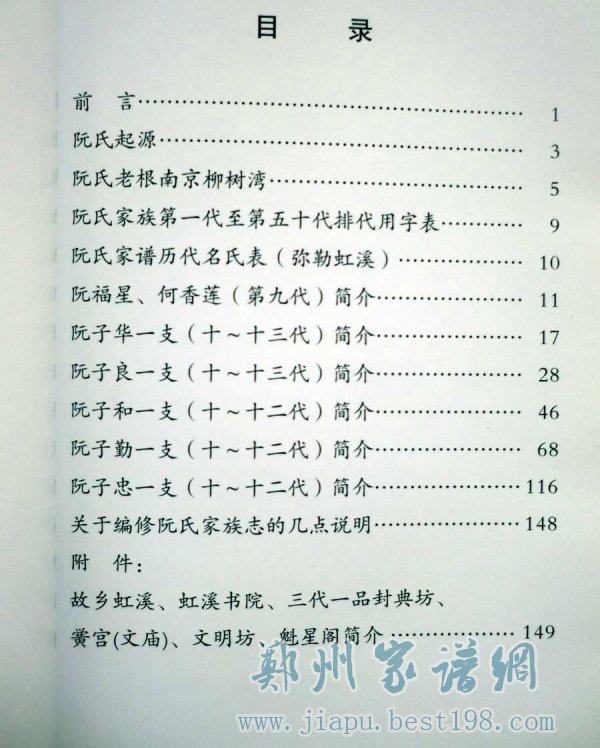 目 录
前 言…………………………………………… 1
阮氏起源………………………………………… 3
阮氏老根南京柳树湾…………………………… 5
阮氏家族第一代至第五十代排代用字表………… 9
阮氏家谱历代名氏表（弥勒虹溪）……………… 10
阮福星、何香莲（第九代）简介………………… 11
阮子华一支（十～十三代）简介………………… 17
阮子良一支（十～十三代）简介………………… 28
阮子和一支（十～十二代）简介………………… 46
阮子勤一支（十～十二代）简介………………… 68
阮子忠一支（十～十二代）简介………………… 116
关于编修阮氏家族志的几点说明………………… 148
附 件：
故乡虹溪、虹溪书院、三代一品封典坊、
黉宫(文庙)、文明坊、魁星阁简介 …………… 149
郑州家谱網
www.jiapu.best198.com